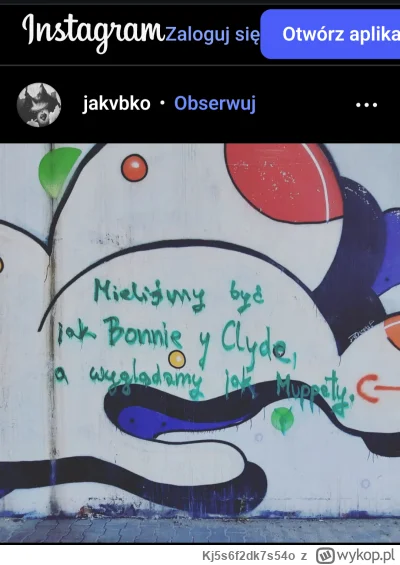 Instagram Zaloguj się Otwórz aplika
jakvbko • Obserwuj ...
Mieliśmy być
jak Bonnie y Clyde,
a wyglądamy jak Muppety,
Kj5s6f2dk7s54o z wykop.pl